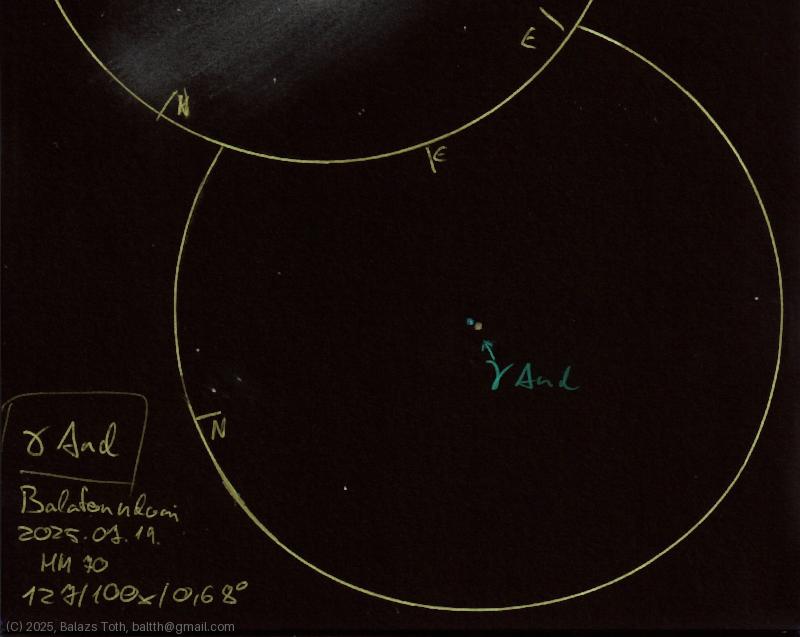 E
N
E
γ And
N
γ And
2025.07.19.
HH 70
127/100x/0,68°
(C) 2025, Balazs Toth, baltth@gmail.com